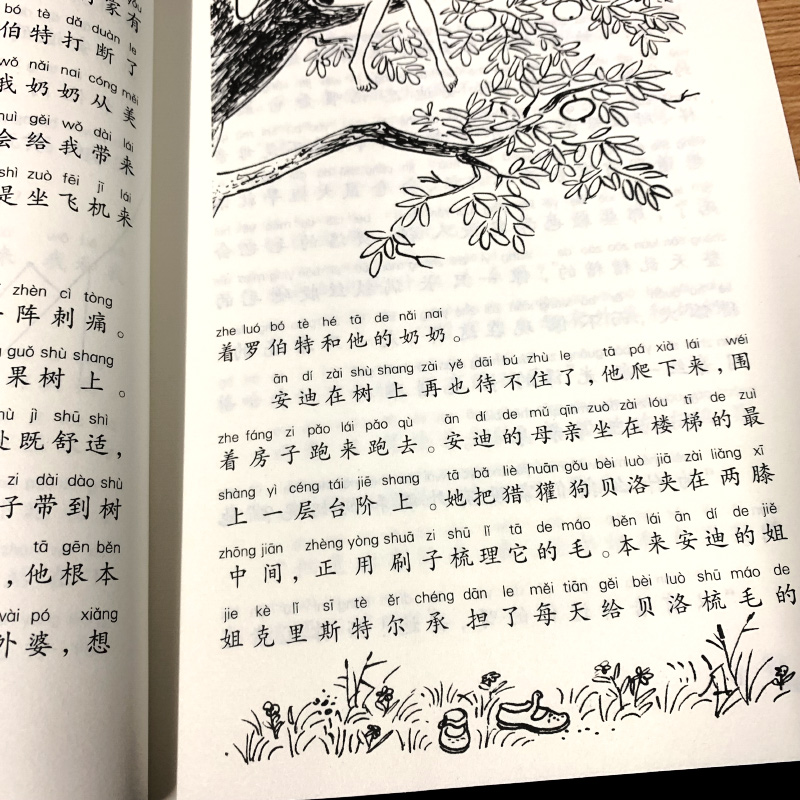 家有
bó tè dǎ duàn le
伯特打断了
wǒ nǎi nai cóng měi
我奶奶从美
gěi wǒ dài lái
会给我带来
shì zuò fēi jī lái
是坐飞机来
zhèn cì tòng
阵刺痛。
guǒ shù shang
果树上。
jì shū shì
处既舒适，
zi dài dào shù
子带到树
tā gēn běn
，他根本
wài pó xiǎng
外婆，想
zhe luó bó tè hé tā de nǎi nai
着罗伯特和他的奶奶。
ān dí zài shù shang zài yě dāi bú zhù le tā pá xià lái wéi
安迪在树上再也待不住了，他爬下来，围
zhe fáng zi pǎo lái pǎo qù ān dí de mǔ qīn zuò zài lóu tī de zuì
着房子跑来跑去。安迪的母亲坐在楼梯的最
shàng yì céng tái jiē shang tā bǎ liè huān gǒu bèi luò jiā zài liǎng xī
上一层台阶上。她把猎獾狗贝洛夹在两膝
zhōng jiān zhèng yòng shuā zi shū lǐ tā de máo běn lái ān dí de jiě
中间，正用刷子梳理它的毛。本来安迪的姐
jie kè lǐ sī tè ěr chéng dān le měi tiān gěi bèi luò shū máo de
姐克里斯特尔承担了每天给贝洛梳毛的